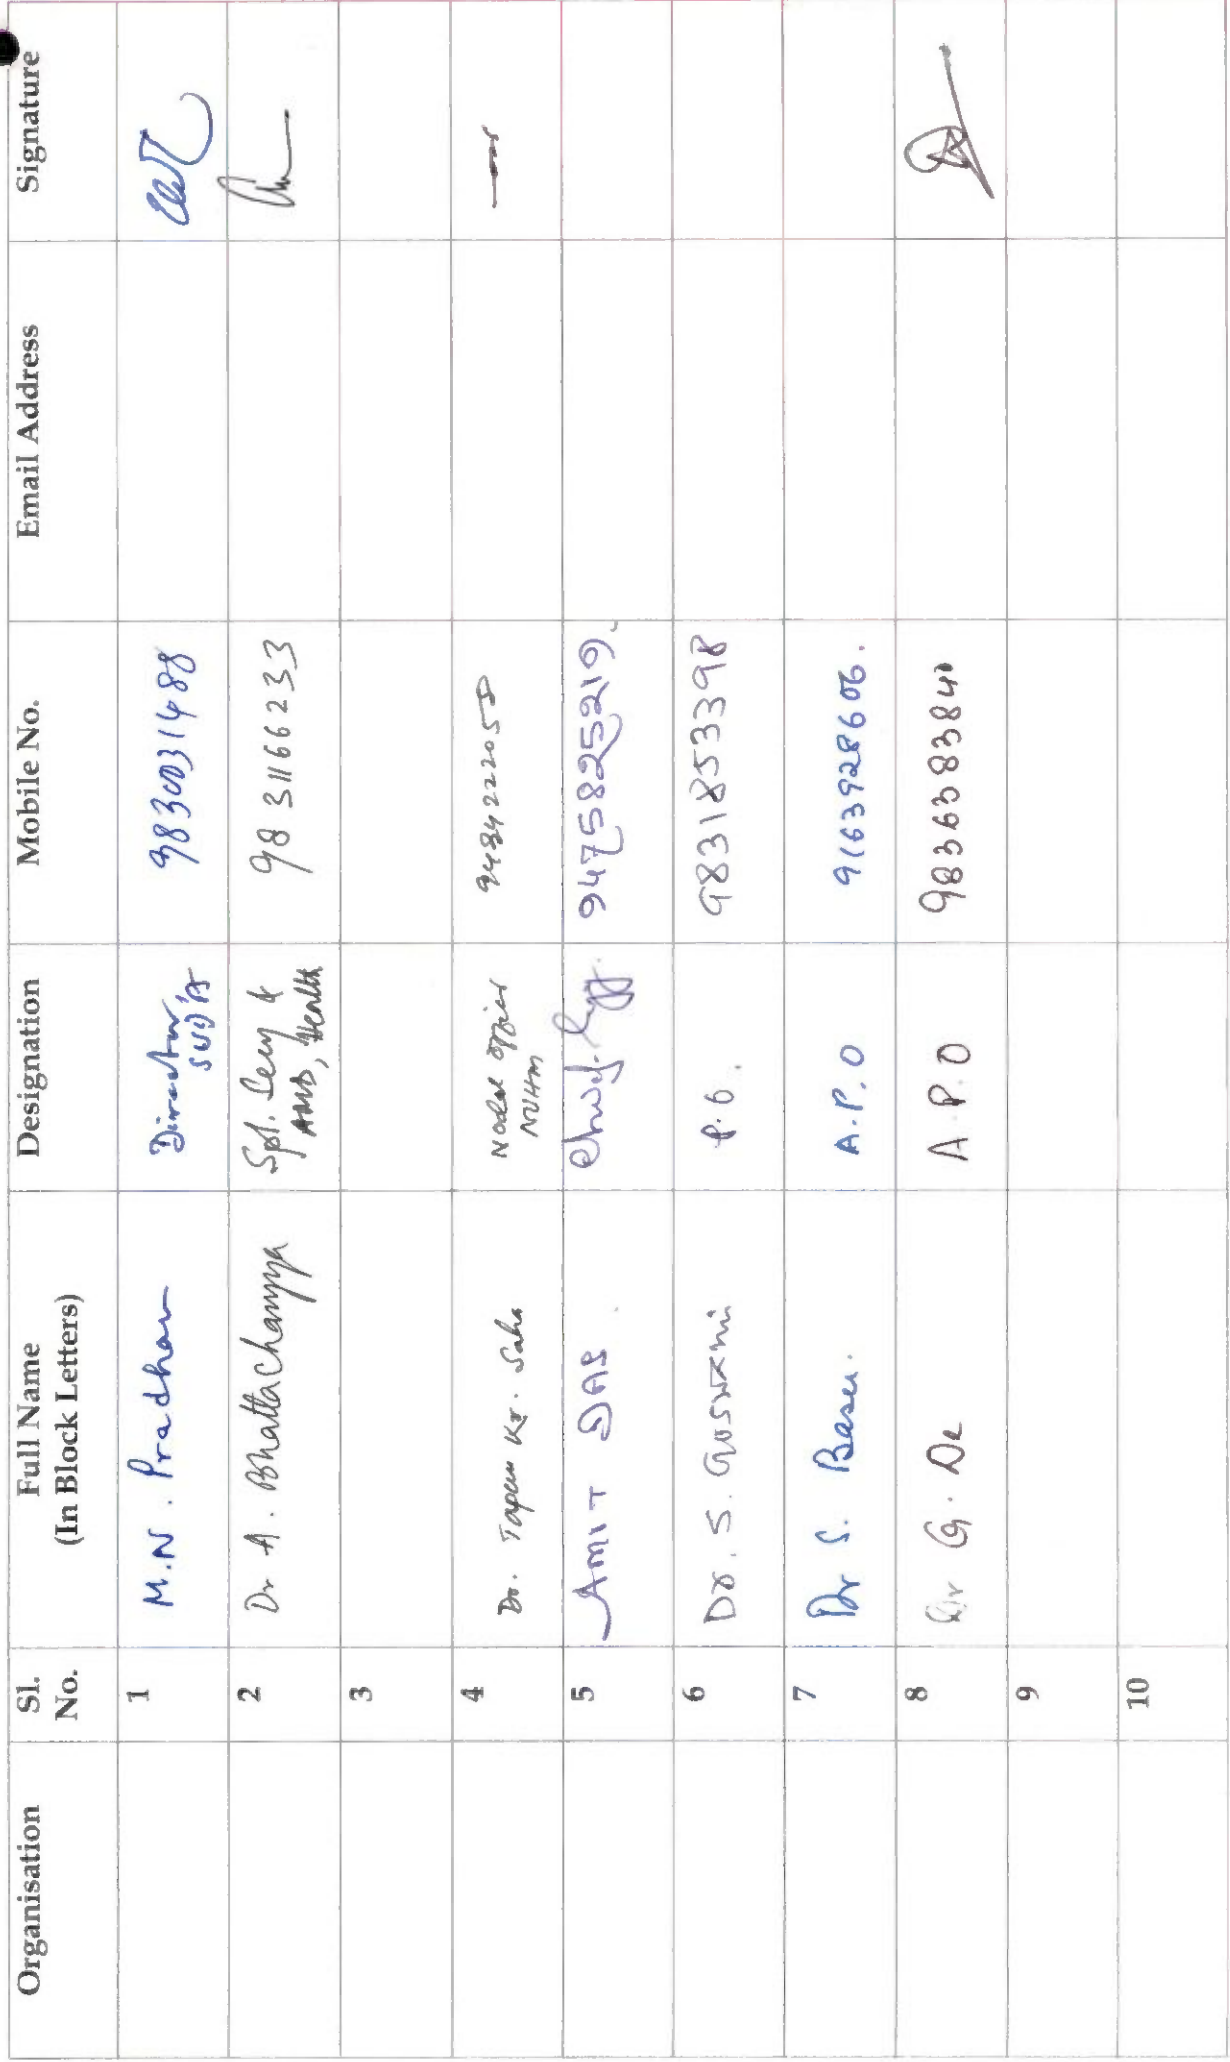 Organisation Sl. No. Full Name (In Block Letters) Designation Mobile No. Email Address Signature
1 M.N. Pradhan Director SUDA 9830031488
2 Dr A. Bhattacharyya Spl. Secy & AMD, Health 9831166233
3
4 Dr. Tapan Kr. Saha Nodal Officer NUHM
5 AMIT DAS 9475825219
6 Dr. S. Goswami P.O. 9831853398
7 Dr S. Basu. A.P.O 9163928606.
8 Dr G. De A.P.O
9
10